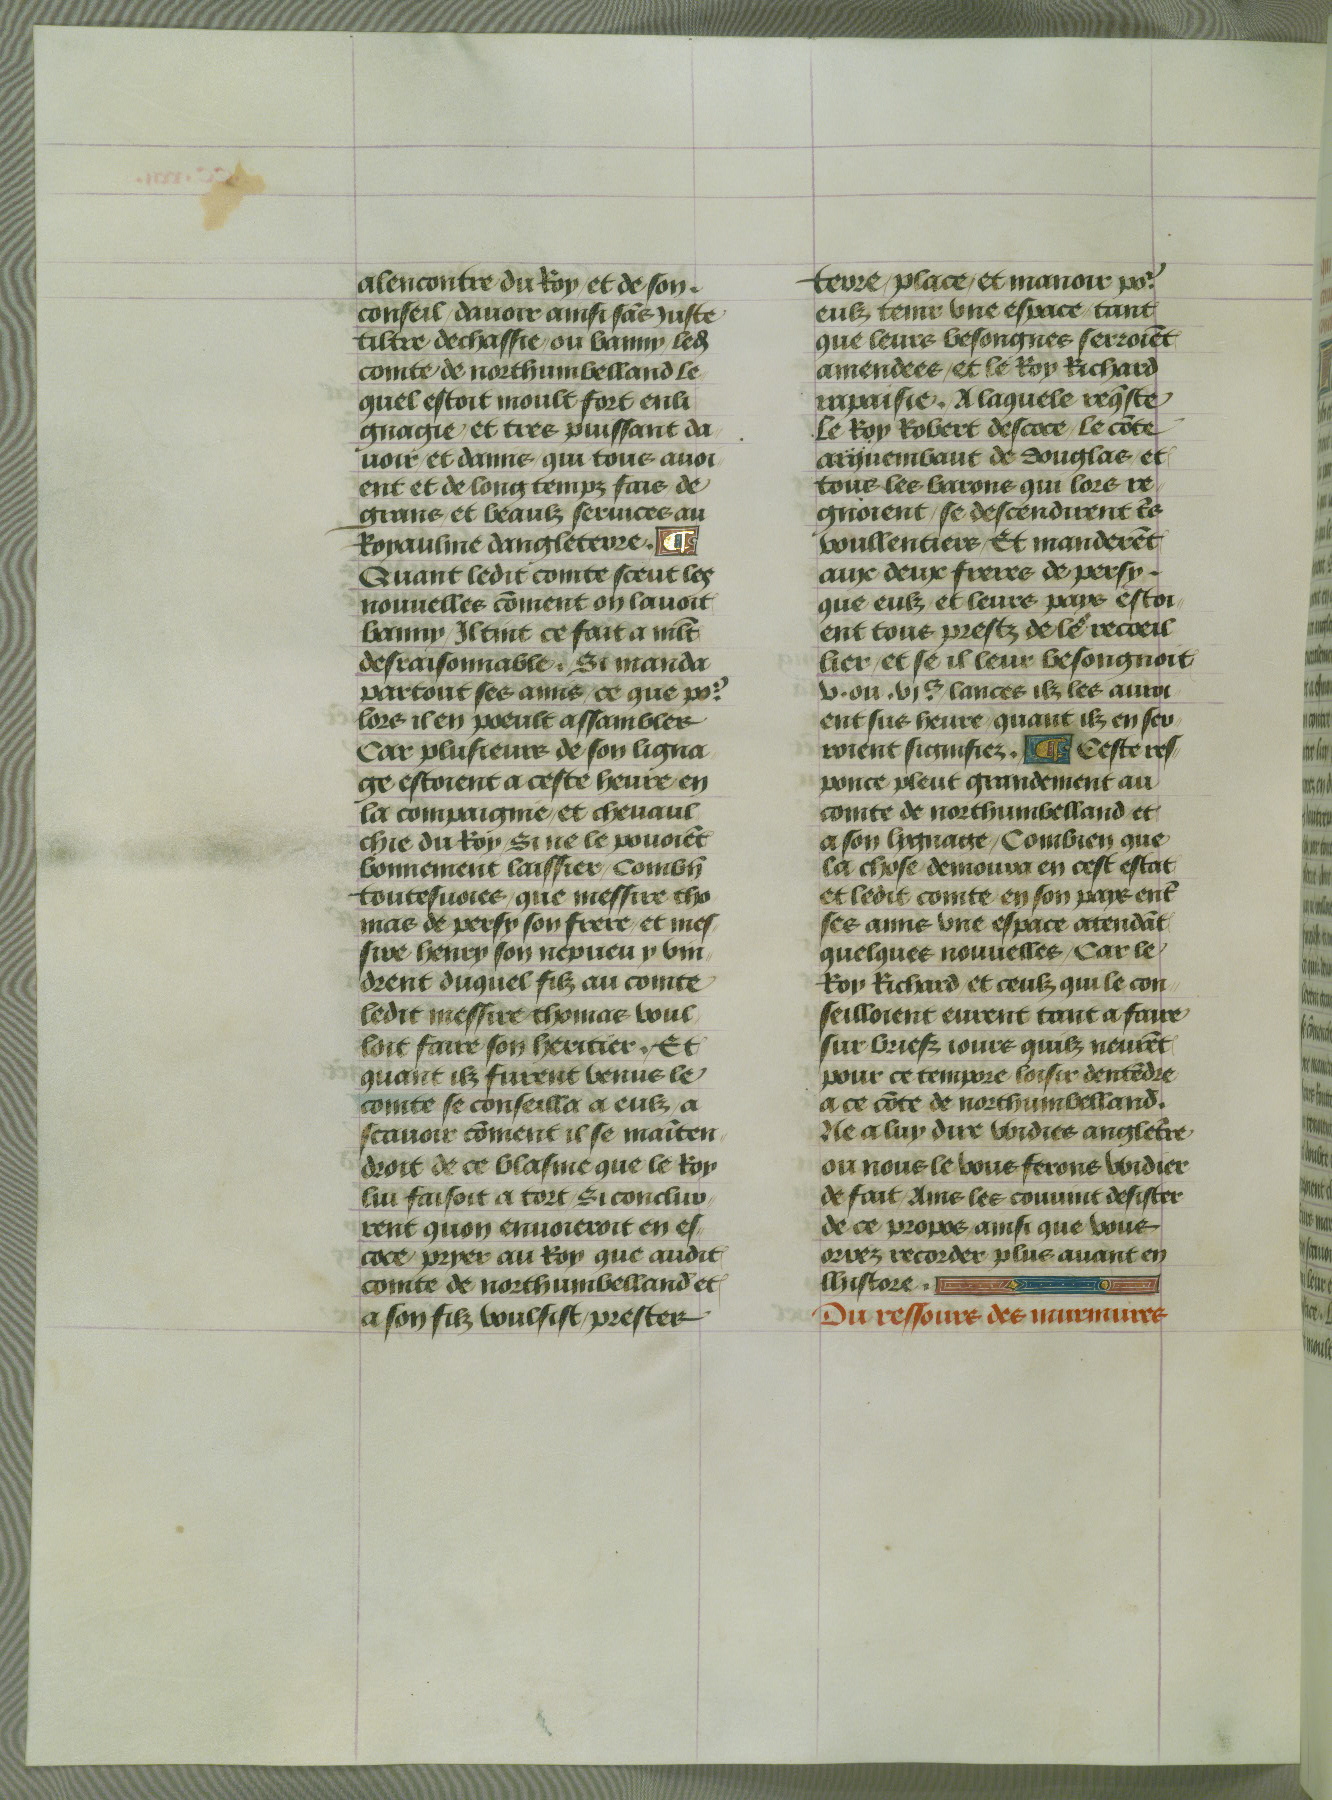 alencontre du Roy / et de son.
conseil / dauoir ainsi sãs Juste
tiltre dechassie / ou banny led̾
comte / de northumbelland le
quel estoit moult fort enli
gnagie / et tres puissant da
uoir / et damis / qui tous auoi
ent et de long tempz fais de
grans / et beaulz seruices au
Royaulme dangleterre. ¶
Quant ledit comte sceut les
nouuelles cõment on lauoit
banny / Il tint ce fait a mlt̃
desraisonnable. Si manda
partout ses amis / ce que poʳ
lors il en poeult assambler
Car plusieurs de son ligna
ge estoient a ceste heure en
la compaignie / et cheuaul
chie du Roy / Si ne le pouoiẽt
bonnement laissier / Combñ
toutesuoies / que messire tho
mas de persy son frere / et mes
sire henry son nepueu y vin
drent duquel filz au comte
ledit messire thomas voul
loit faire son heritier. Et
quant ilz furent venus le
comte se conseilla a eulz / a
scauoir cõment il se maĩten
droit de ce blasme que le Roy
lui faisoit a tort / Si conclur
rent quon enuoieroit en es
coce / pryer au Roy que audit
comte de northumbelland et
a son filz voulsist / prester
terre / place / et manoir poʳ
eulz tenir vne espace / tant
que leurs besongnes serroiẽt
amendees / et le Roy Richard
rapaisie. A laquele reqs̃te
Le Roy Robert descoce / le cõte
arquembaut de Douglas et
tous les barons qui lors re
gnoient / se descendirent tˀs
voullentiers / Et manderẽt
aux deux freres de persy.
que eulz et leurs pays estoi
ent tous prestz de lès recoeil
lier / et se il leur besongnoit
v. ou .vjᶜ. lances ilz les auroi
ent sus heure / quant ilz en ser
roient signifiez. ¶ Ceste res
ponce pleut grandement au
comte de northumbelland et
a son lygnage / Combien que
la chose demoura en cest estat
et ledit comte en son pays entˀ
ses amis vne espace atendãt
quelques nouuelles / Car le
Roy Richard et ceulz qui le con
seilloient eurent tant a faire
sur briefz iours quilz neurẽt
pour ce tempore loisir dentẽdre
a ce cõte de northumbelland.
Ne a luy dire vvidies angletˀre
ou nous le vous ferons vvidier
de fait / Ains les conuint desister
de ce propos ainsi que vous
orrez recorder plus auant en
lhistore.
Du ressours des murmures